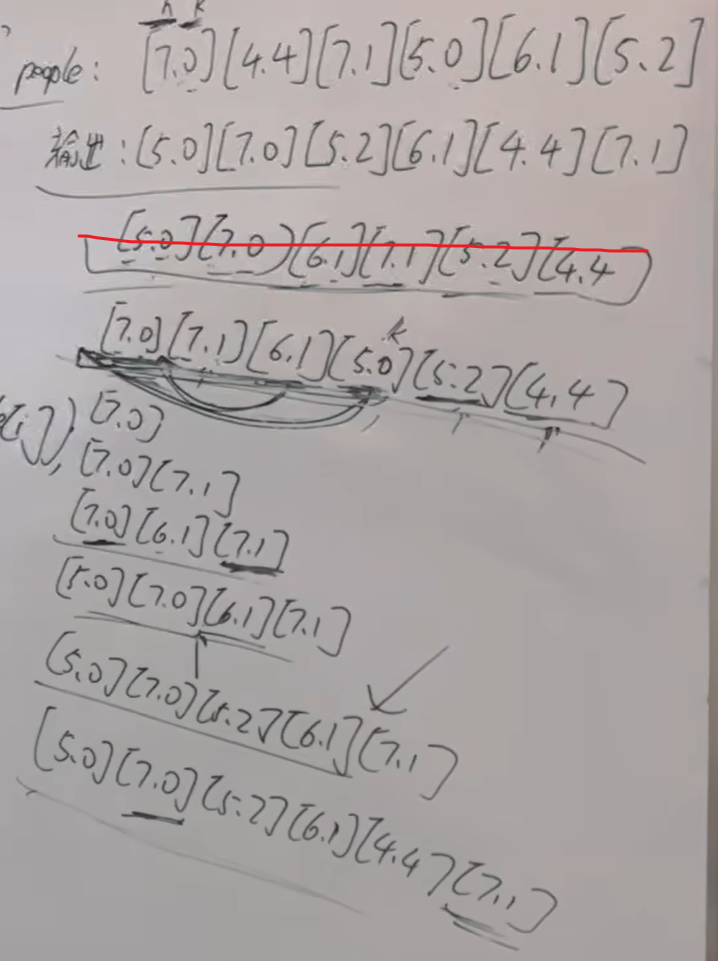 h k
people: [7.0][4.4][7.1][5.0][6.1][5.2]
输出: [5.0][7.0][5.2][6.1][4.4][7.1]
[5.0][7.0)[6.1][7.1][5.2][4.4
k
[7.0][7.1)[6.1][5.0][5.2][4.4]
[7.0]
[7.0][7.1]
[7.0][6.1][7.1]
[5.0][7.0][6.1][7.1]
(5.0)[7.0][5.2][6.1][7.1]
[5.0][7.0][5.2][6.1][4.4][7.1]